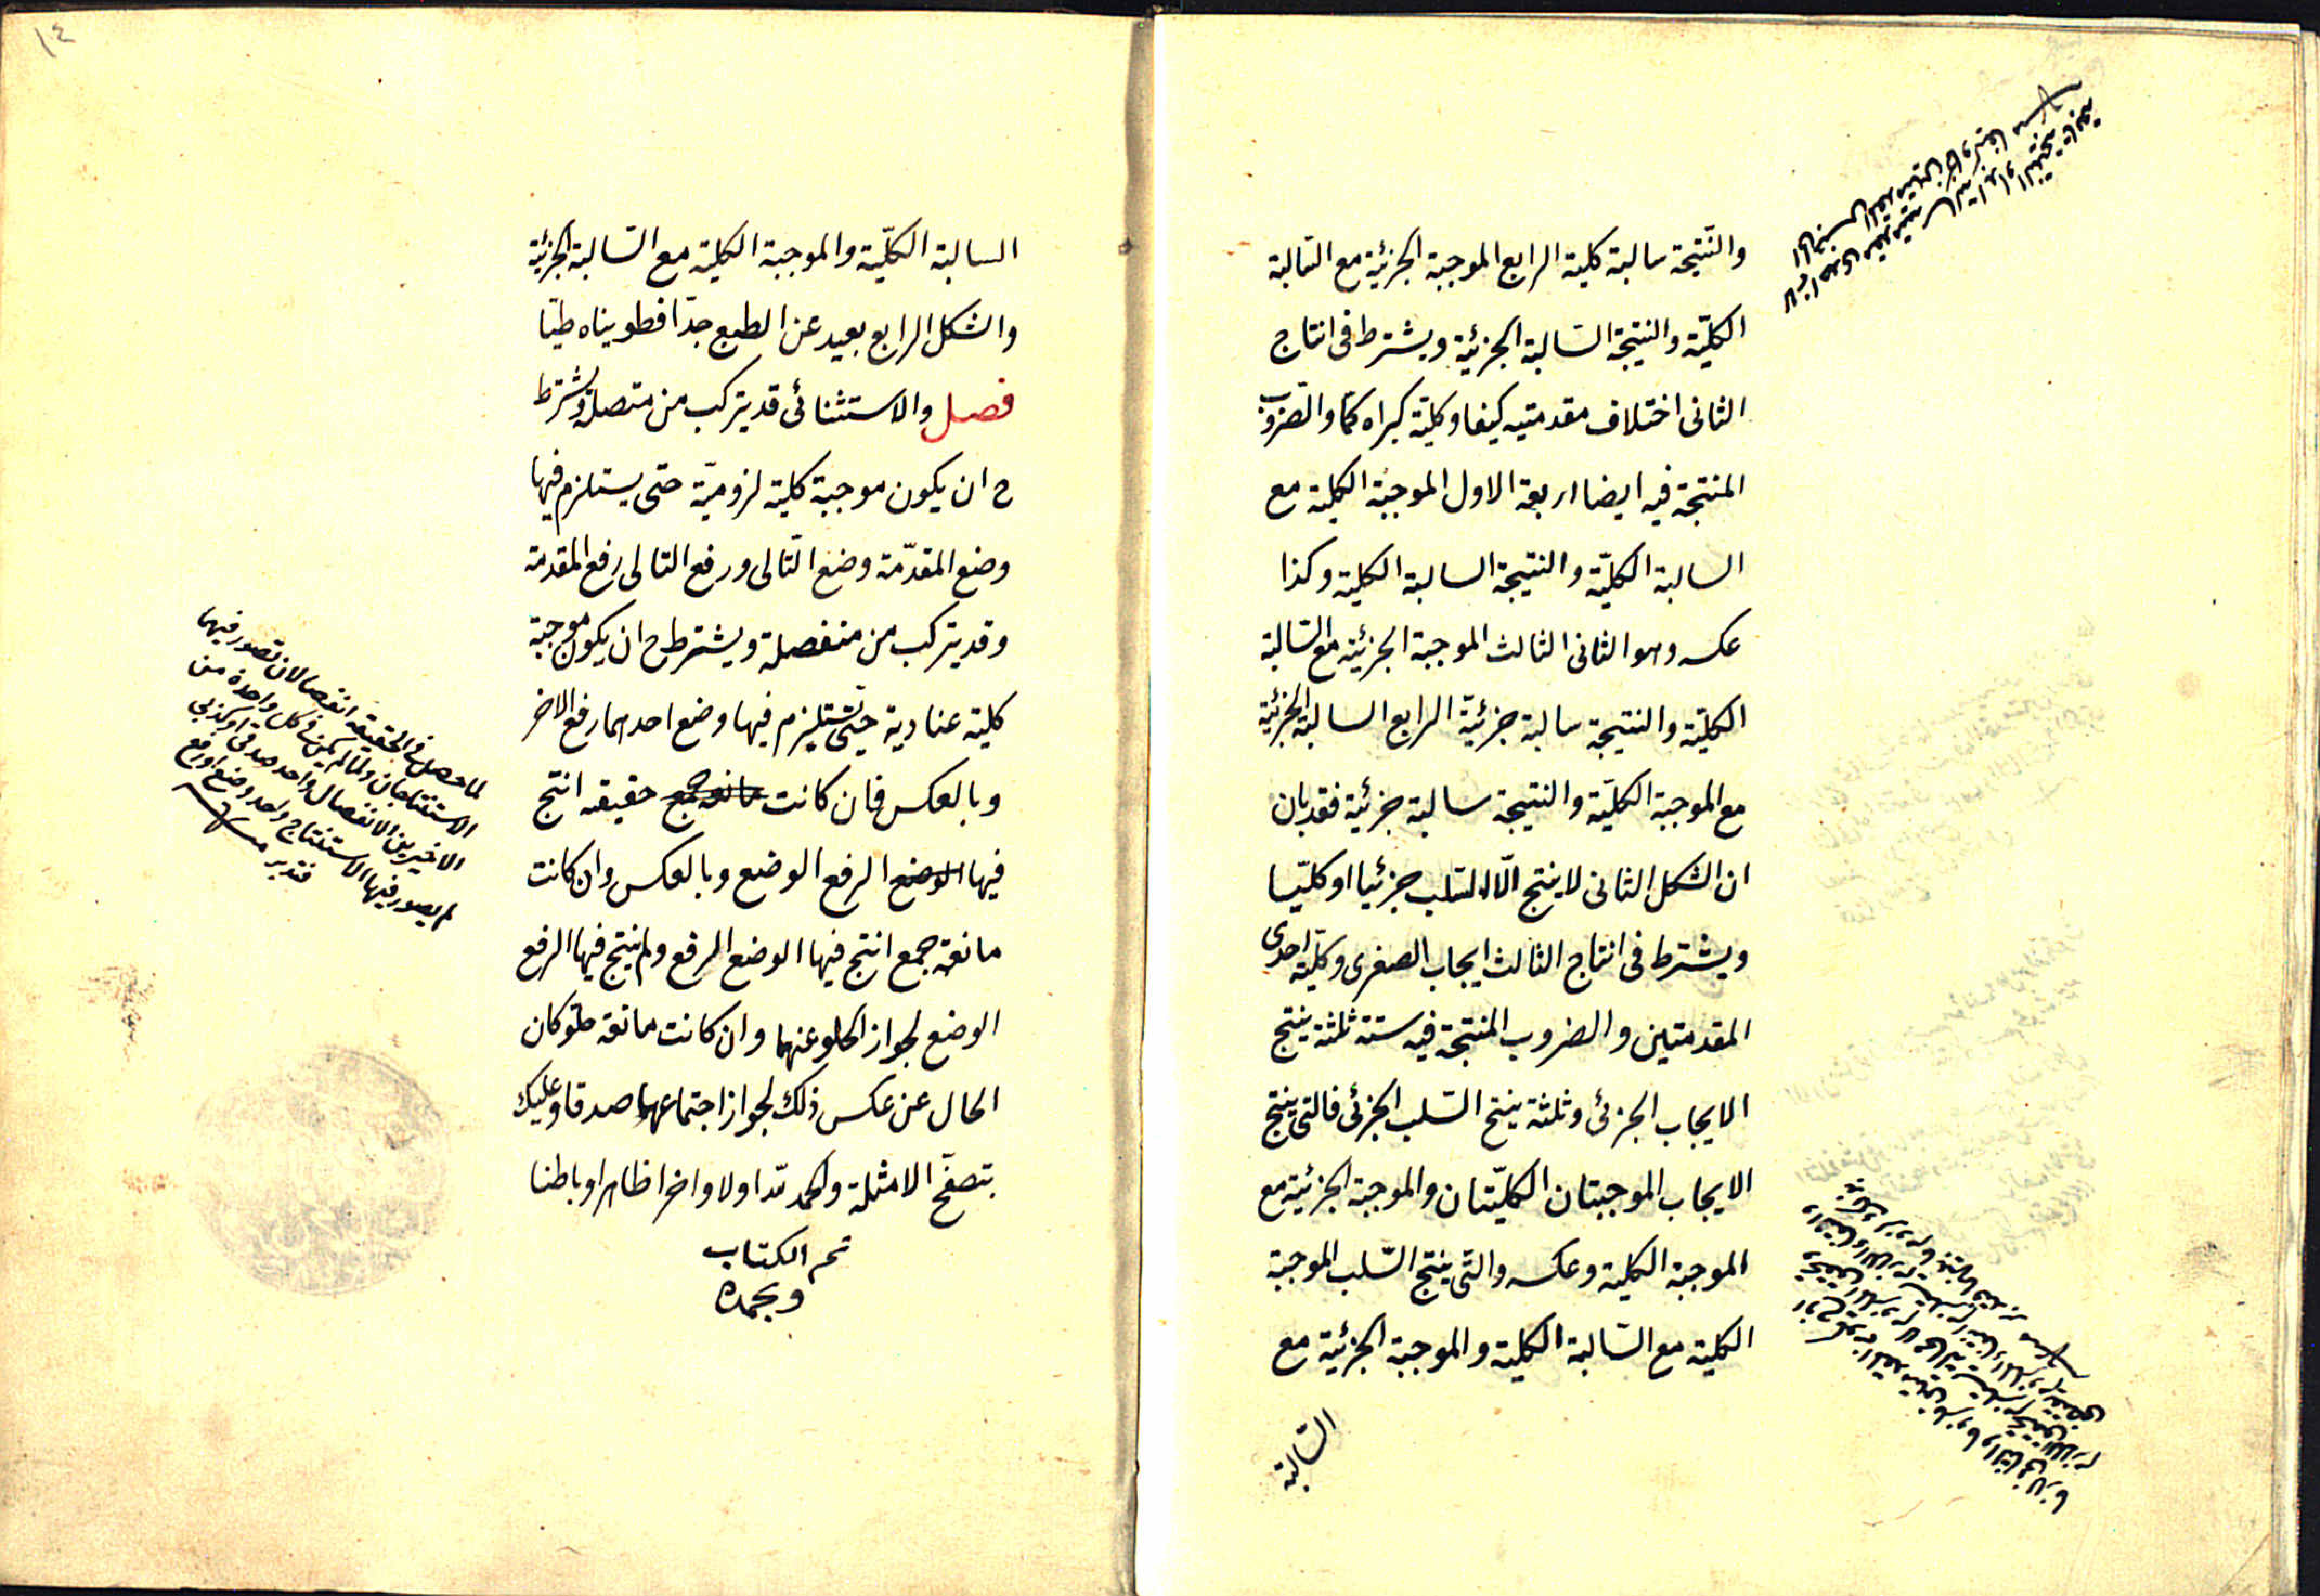 والنّتيجة سالبة كلية الرابع الموجبة الجزئية مع السالبة
الكليّة والنتيجة السالبة الجزئية ويشترط فى انتاج
الثانى اختلاف مقدمتيه كيفا وكليّة كبراه كمّا والضروب
المنتجة فيه ايضا اربعة الاول الموجبة الكلية مع
السالبة الكليّة والنتيجة السالبة الكلية وكذا
عكسه وهو الثانى الثالث الموجبة الجزئية مع السالبة
الكليّة والنتيجة سالبة جزئية الرابع السالبة الجزئية
مع الموجبة الكليّة والنتيجة سالبة جزئية فقد بان
ان الشكل الثانى لا ينتج الّا السّلب جزئيا او كليّا
ويشترط فى انتاج الثالث ايجاب الصغرى وكليّة احدى
المقدمتين والضروب المنتجة فيه ستة ثلثة ينتج
الايجاب الجزئى وثلثة ينتج السّلب الجزئى فالتى ينتج
الايجاب الموجبتان الكليّتان والموجبة الجزئية مع
الموجبة الكلية وعكسه والتى ينتج السّلب الموجبة
الكلية مع السّالبة الكلية والموجبة الجزئية مع
السّالبة
١٤
السالبة الكليّة والموجبة الكلية مع السّالبة الجزئية
والشكل الرابع بعيد عن الطبع جدّا فطويناه طيّا
فصل والاستثنائى قد يتركب من متصلة ويشترط
ح ان يكون موجبة كلية لزوميّة حتى يستلزم فيها
وضع المقدّمة وضع التّالى ورفع التالى رفع المقدمة
وقد يتركب من منفصلة ويشترط ح ان يكون موجبة
كلية عنادية حتى يستلزم فيها وضع احدهما رفع الاخر
وبالعكس فان كانت مانعة جمع حقيقه انتج
فيها الوضع الرفع الوضع وبالعكس وان كانت
مانعة جمع انتج فيها الوضع الرفع ولم ينتج فيها الرفع
الوضع لجواز الخلو عنهما وان كانت مانعة خلو كان
الحال عن عكس ذلك لجواز اجتماعهما صدقا وعليك
بتصفّح الامثلة والحمد لله اولا واخرا ظاهرا وباطنا
تم الكتاب
وبحمده
لما حصل فى الحقيقه انفصالان تصور فيها
الاستنتاجان ولما لم يكن فى كل واحدة من
الاخيرين الا انفصال واحد صدقى او كذبى
لم يصور فيها الا استنتاج واحد وضع او رفع
فتدبر